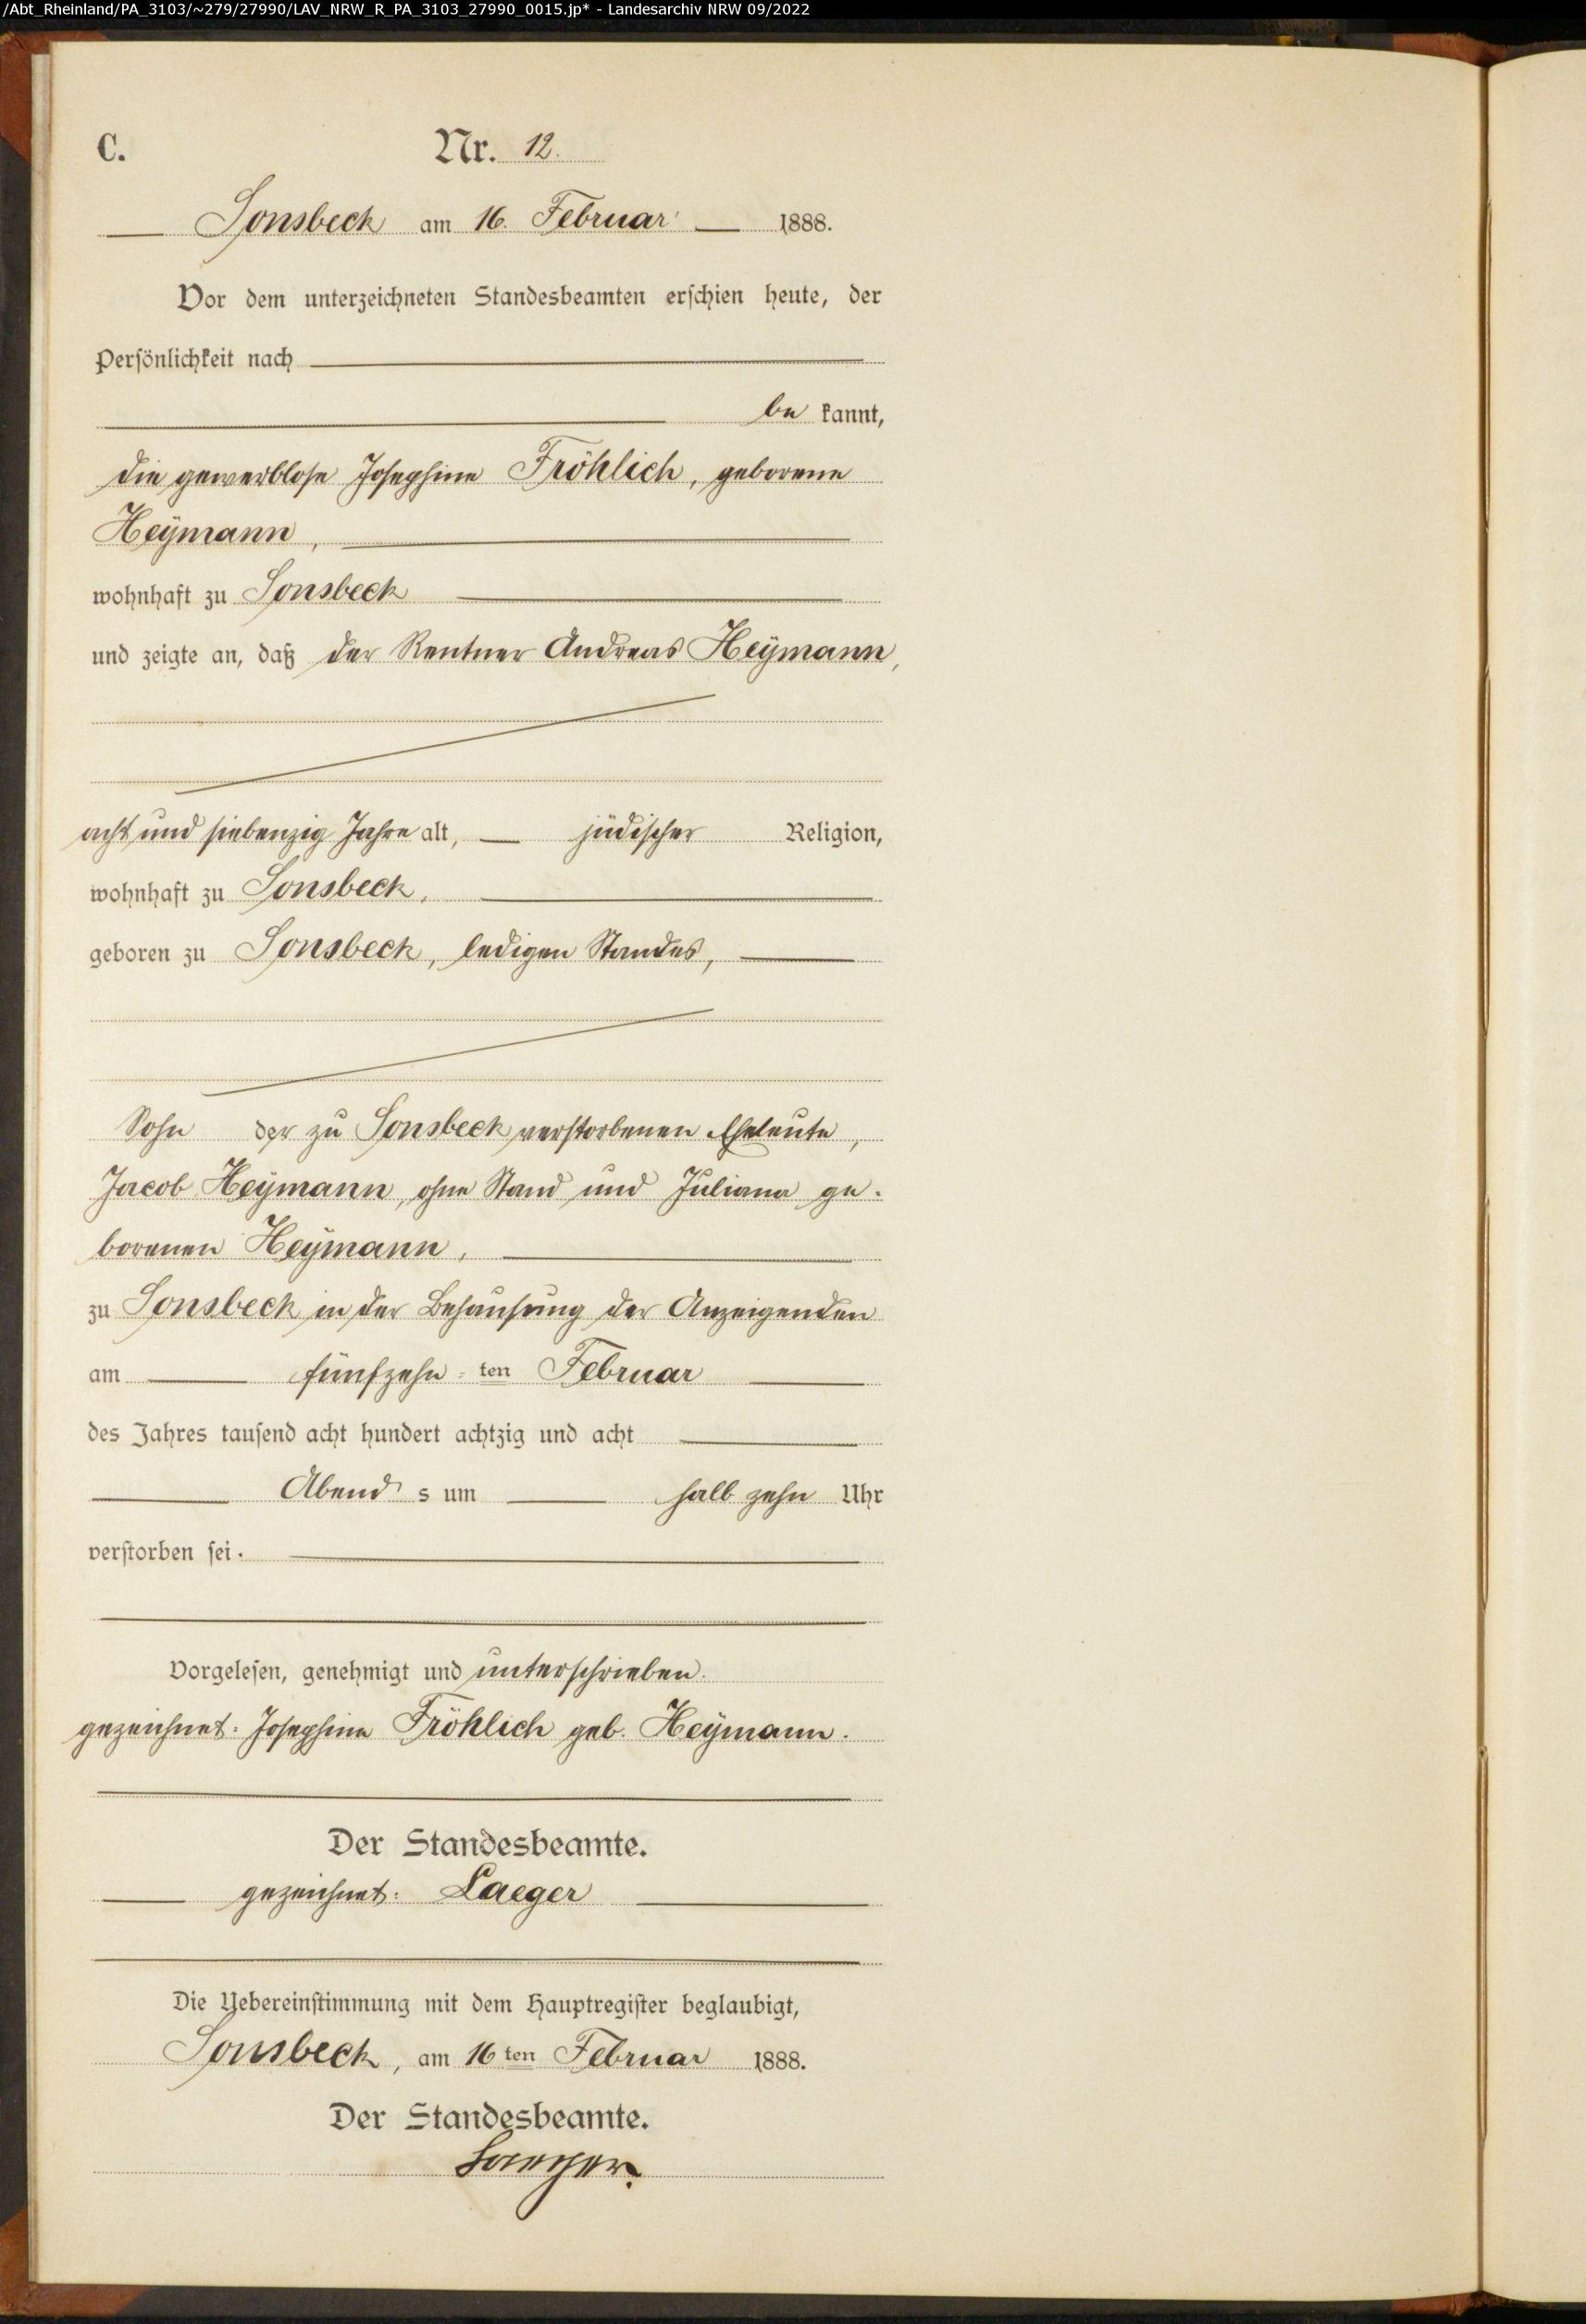 /Abt_Rheinland/PA_3103/~279/27990/LAV_NRW_R_PA_3103_27990_0015.jp* - Landesarchiv NRW 09/2022
C. Nr. 12.
Sonsbeck am 16. Februar 1888.
Vor dem unterzeichneten Standesbeamten erschien heute, der
Persönlichkeit nach
be kannt,
die gewerblose Josephine Fröhlich, geborene
Heÿmann,
wohnhaft zu Sonsbeck
und zeigte an, daß der Rentner Andreas Heÿmann,
acht und siebenzig Jahre alt, jüdischer Religion,
wohnhaft zu Sonsbeck,
geboren zu Sonsbeck, ledigen Standes,
Sohn der zu Sonsbeck verstorbenen Eheleute,
Jacob Heÿmann, ohne Stand und Juliana ge-
borenen Heÿmann,
zu Sonsbeck in der Behausung der Anzeigenden
am fünfzehn-ten Februar
des Jahres tausend acht hundert achtzig und acht
Abend s um halb zehn Uhr
verstorben sei.
Vorgelesen, genehmigt und unterschrieben.
gezeichnet: Josephine Fröhlich geb. Heÿmann.
Der Standesbeamte.
gezeichnet: Laeger
Die Uebereinstimmung mit dem Hauptregister beglaubigt,
Sonsbeck, am 16ten Februar 1888.
Der Standesbeamte.
Laeger.